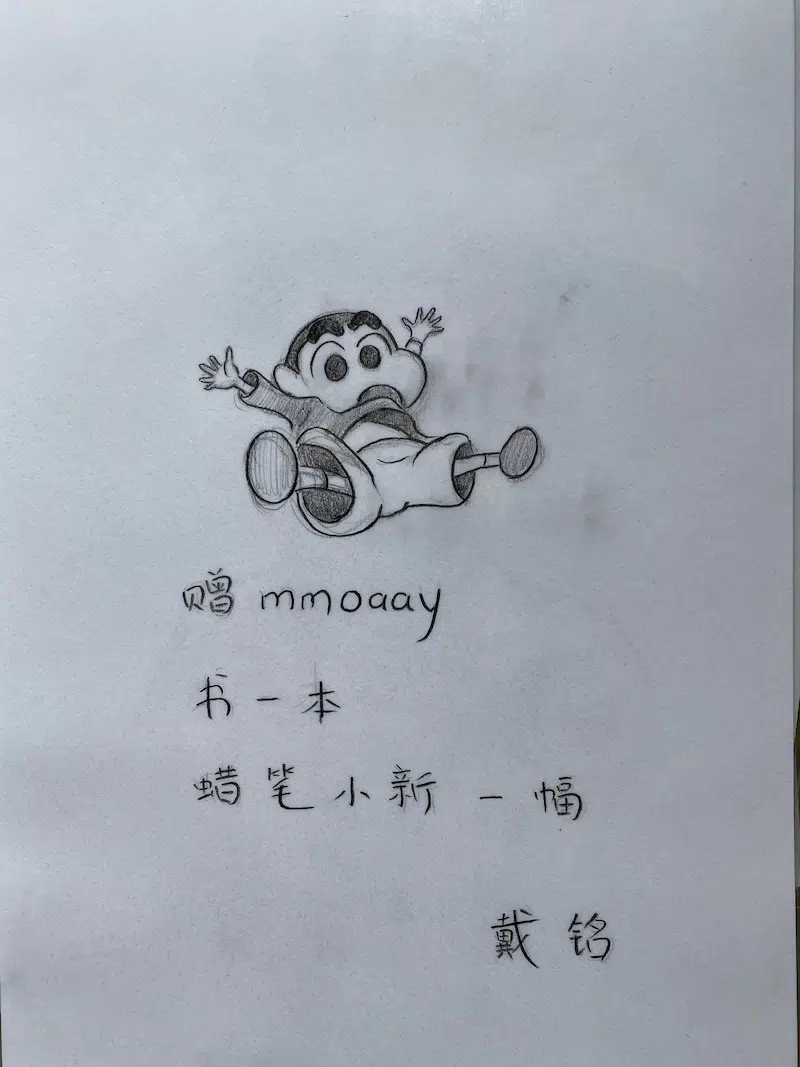 赠 mmoaay
书一本
蜡笔小新 一幅
戴铭